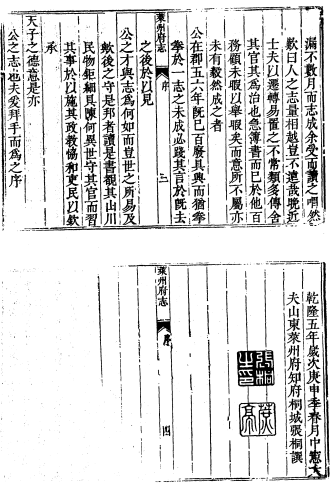 漏不數月而志成余受而讀之喟然
歎曰人之志量相越豈不遠哉晩近
士夫以遷轉易置之不常類多傳舍
其官其爲治也急簿書而已於他百
務顧未暇以舉暇矣而意所不屬亦
未有毅然成之者
公在郡五六年旣已百廢具興而猶拳
拳於一志之未成必踐其言於旣去
之後於以見
公之才與志爲何如而豈世之所易及
歟後之守是邦者讀是書觀其山川
民物鉅細具陳何異世守其官而習
其事於以施其政教協和吏民以欽
承
天子之德意是亦
公之志也夫爰拜手而爲之序
萊州府志
序
三
乾隆五年歲次庚申季春月中憲大
夫山東萊州府知府桐城張桐譔
張桐
之印
萊州府志
序
四